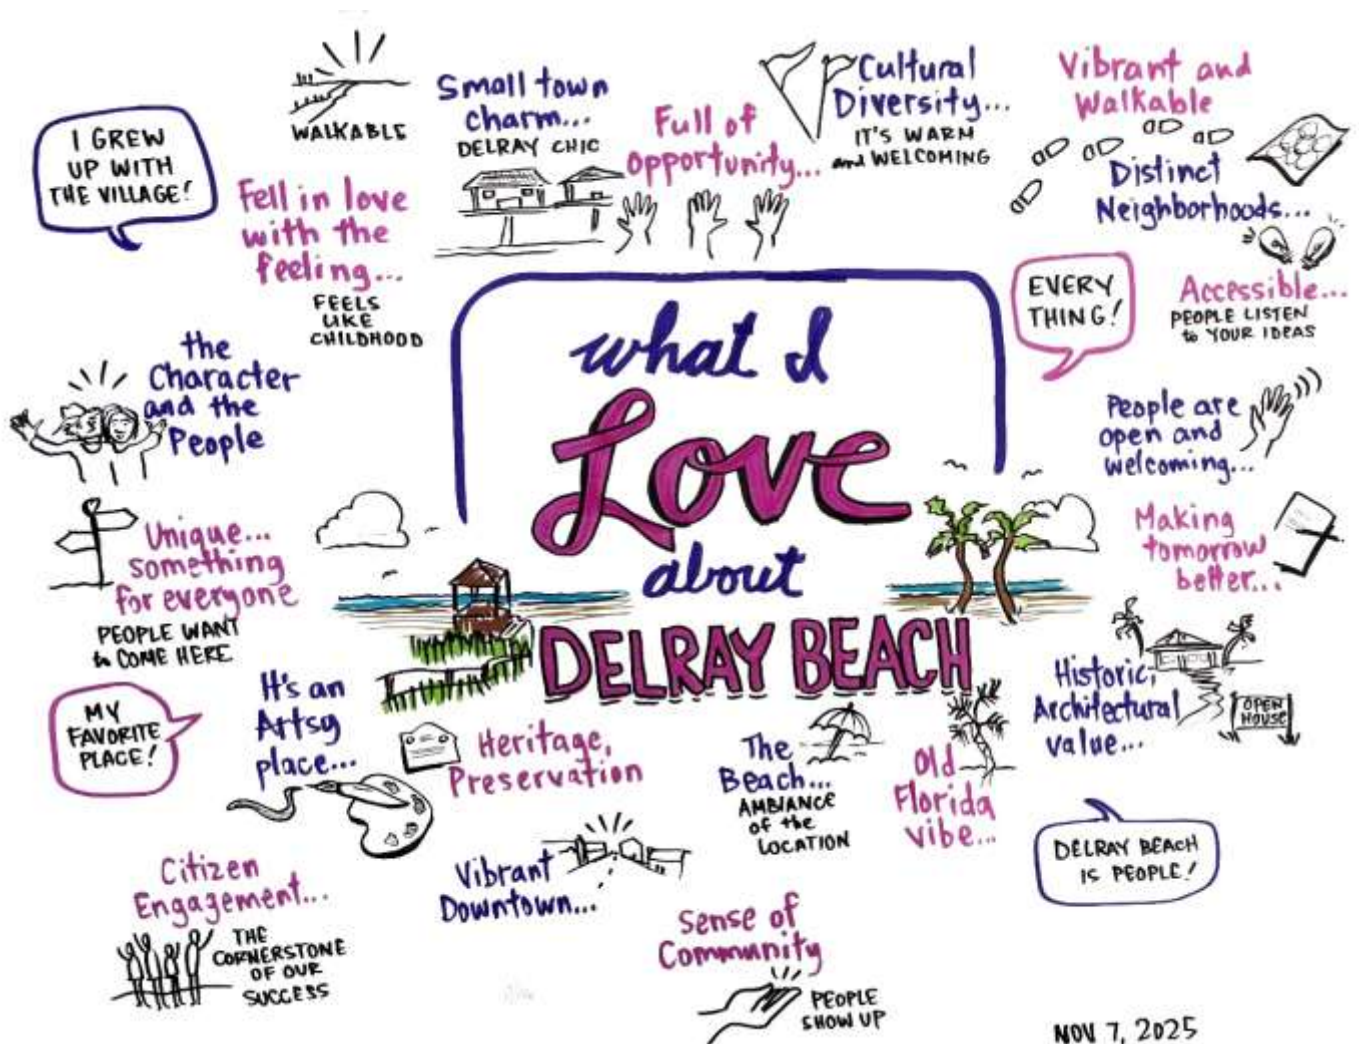 WALKABLE
Small town
charm...
DELRAY CHIC
Full of
opportunity...
Cultural
Diversity...
IT'S WARM
and WELCOMING
Vibrant and
Walkable
Distinct
Neighborhoods...
I GREW
UP WITH
THE VILLAGE!
Fell in love
with the
feeling...
FEELS
LIKE
CHILDHOOD
EVERY
THING!
Accessible...
PEOPLE LISTEN
to YOUR IDEAS
what I
Love
about
DELRAY BEACH
the
Character
and the
People
People are
open and
welcoming...
Unique...
something
for everyone
PEOPLE WANT
to COME HERE
Making
tomorrow
better...
MY
FAVORITE
PLACE!
It's an
Artsy
place...
Heritage,
Preservation
The
Beach...
AMBIANCE
of the
LOCATION
Old
Florida
vibe...
Historic,
Architectural
value...
OPEN
HOUSE
DELRAY BEACH
IS PEOPLE!
Citizen
Engagement...
THE
CORNERSTONE
OF OUR
SUCCESS
Vibrant
Downtown...
Sense of
Community
PEOPLE
SHOW UP
NOV 7, 2025